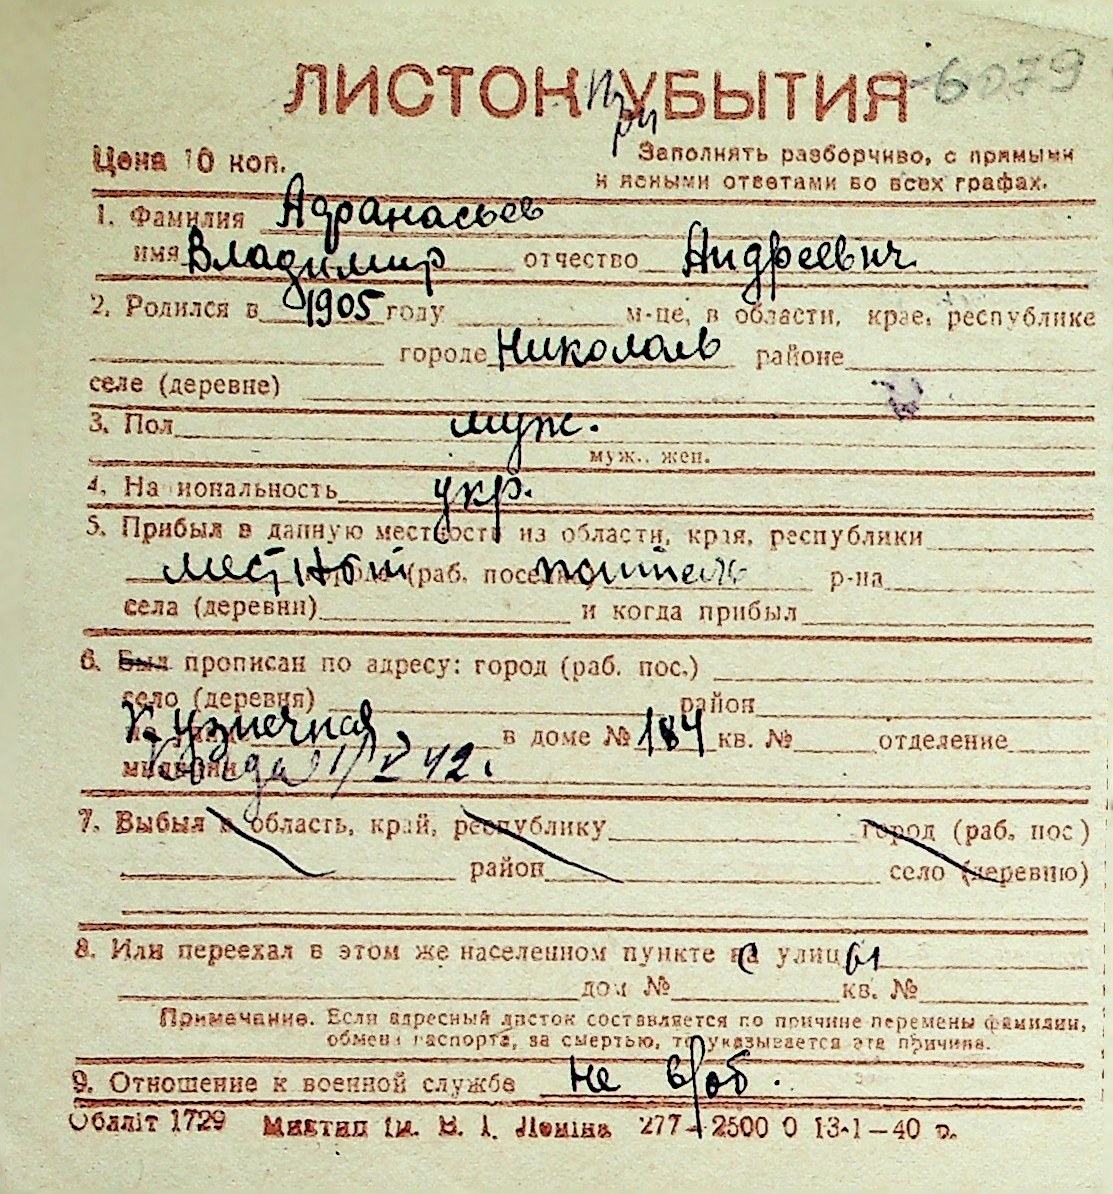 ЛИСТОК при УБЫТИЯ 6079
Цена 10 коп.
Заполнять разборчиво, с прямыми
и ясными ответами во всех графах.
1. Фамилия Афанасьев
имя Владимир отчество Андреевич
2. Родился в 1905 году м-це, в области, крае, республике
городе Николаев районе
селе (деревне)
3. Пол муж.
муж., жен.
4. Национальность укр.
5. Прибыл в данную местность из области, края, республики
местный города (раб. поселка) житель р-на
села (деревни) и когда прибыл
6. Был прописан по адресу: город (раб. пос.)
село (деревня) район
Кузнечная в доме № 184 кв. № отделение
милиции Когда 1/V 42.
7. Выбыл в область, край, республику город (раб. пос)
район село (деревню)
8. Или переехал в этом же населенном пункте с улицы
дом № кв. №
Примечание. Если адресный листок составляется по причине перемены фамилии,
обмена паспорта, за смертью, то указывается эта причина.
9. Отношение к военной службе не в/об.
Обллiт 1729 Миктип iм. В. I. Ленiна 277—2500 0 13-1—40 р.